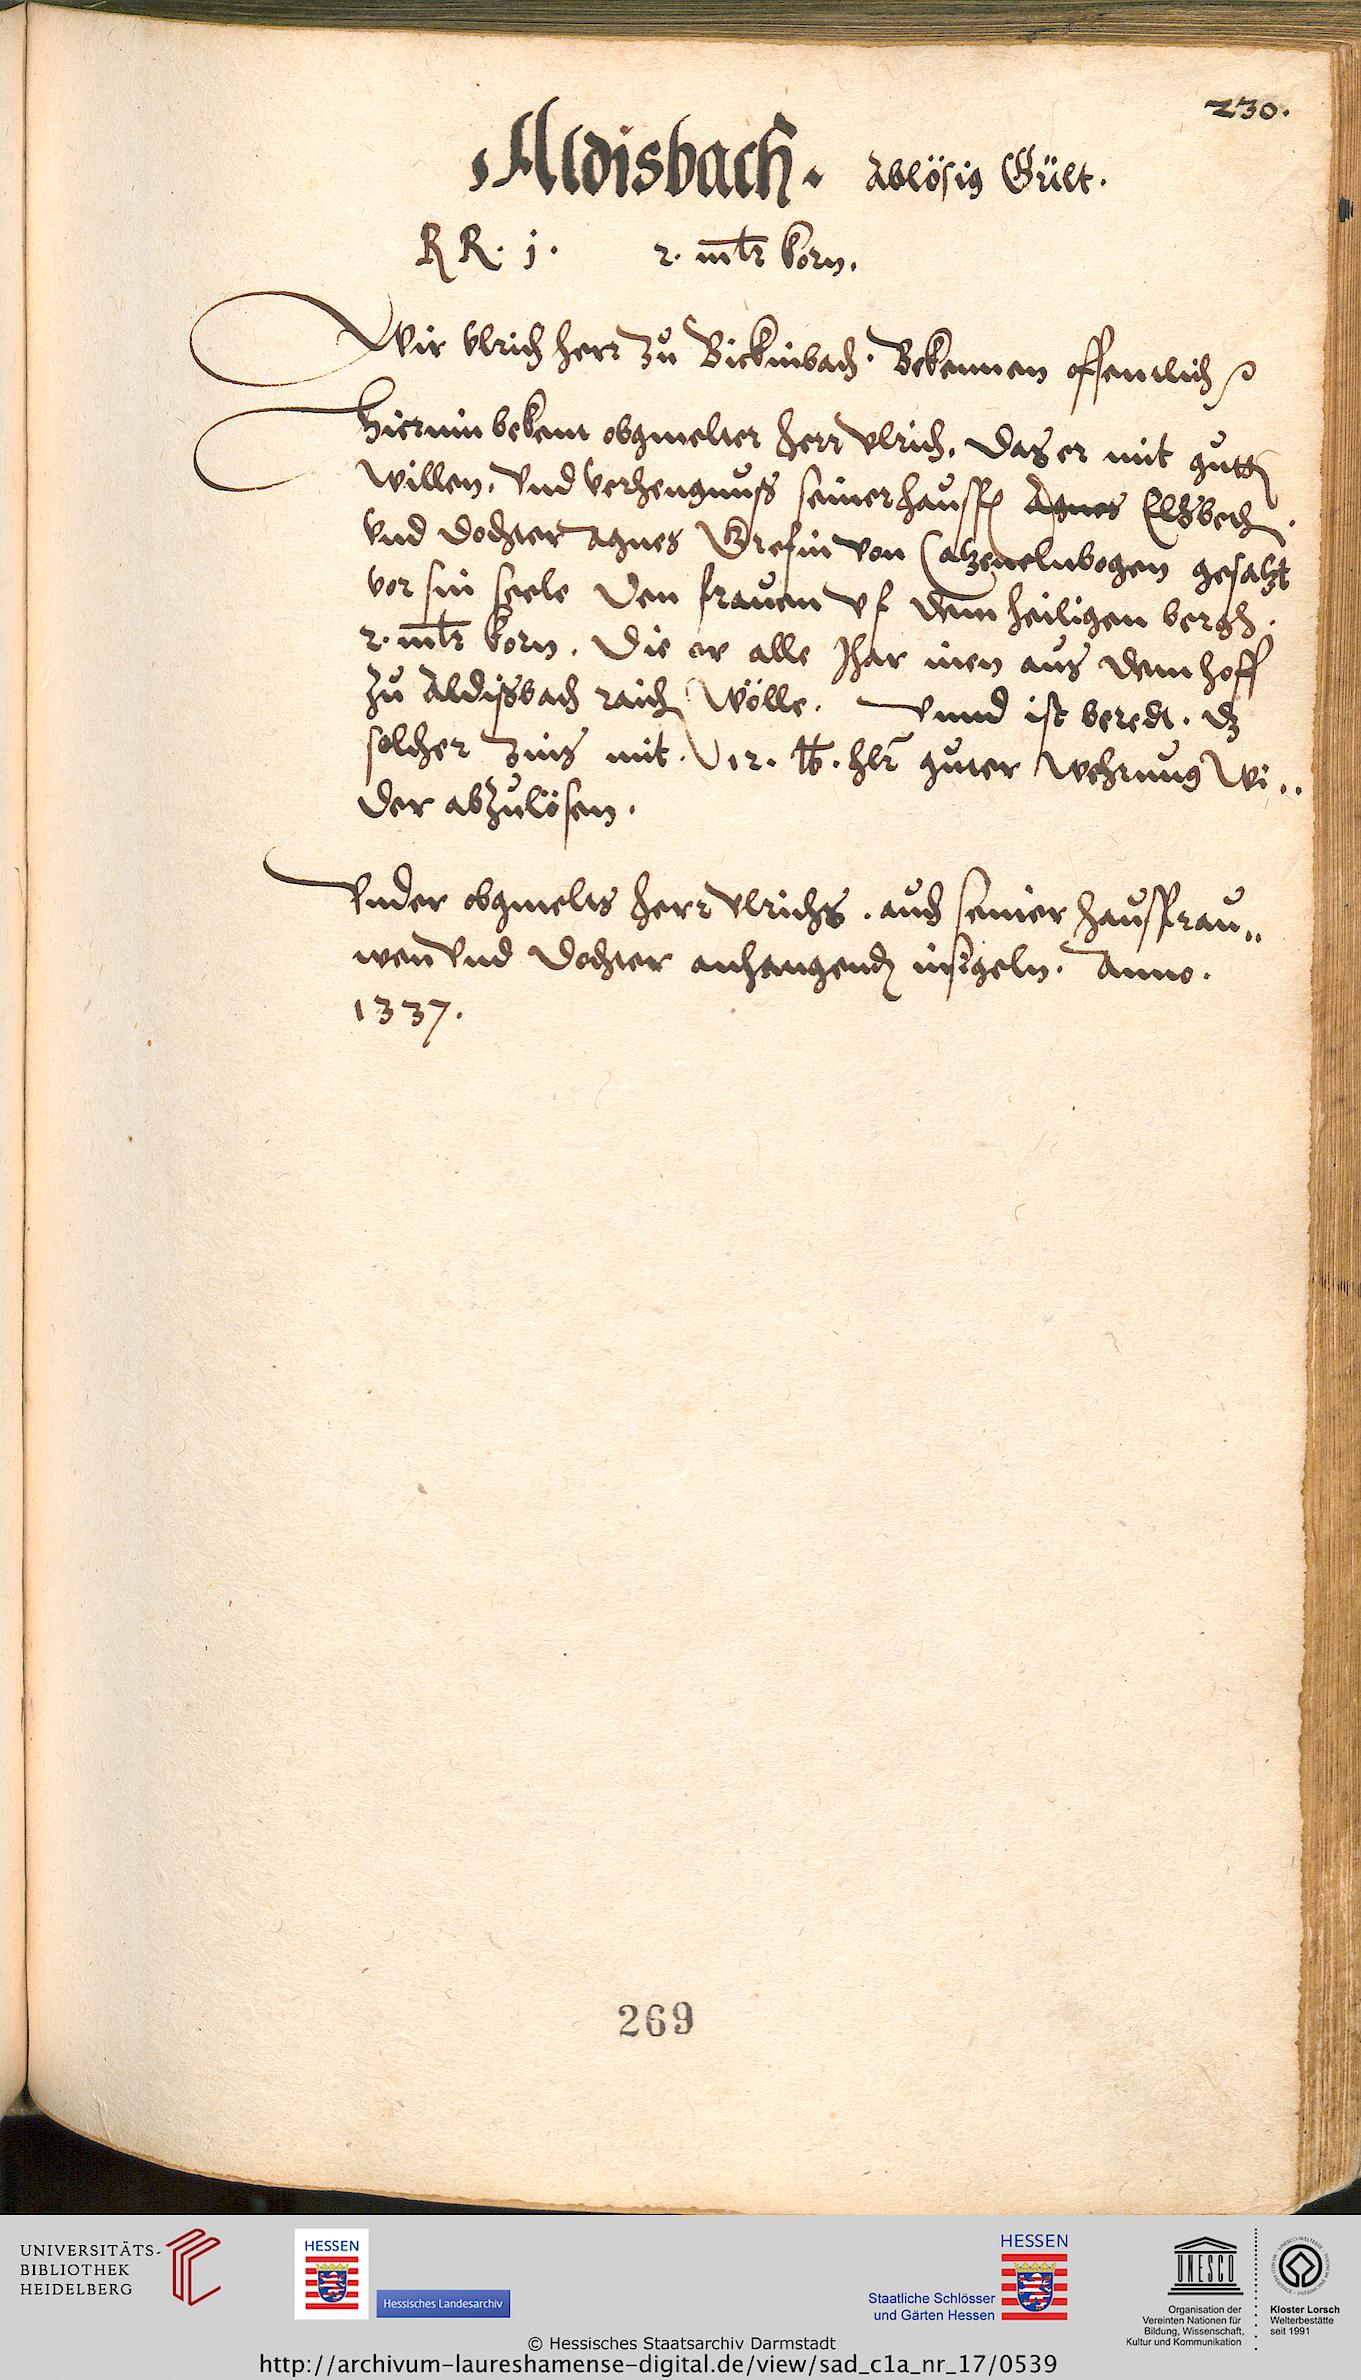 230.
Aldisbach. Ablösig Gült.
R R. j. 2. mltr korn.
Wir Ulrich herr zu Bickinbach. Bekennen offentlich
Hierinn bekent obgmelter herr Ulrich. Das er mit gutte
willen. und verhengnuß seiner hausf Agnes Elßbeth.
und dochter Agnes Grefin von Catzenelnbogen gesatzt
vor sin seele den frauen uf dem heiligen bergh.
2. mltr korn. Die er alle Jhar inen aus dem hoff
zu Aldißbach raich wölle. Unnd ist beredt. dz
solcher Zins mit. 12. lb. hlr guter wehrung wi..
der abzulösen.
Under obgmelts herr Ulrichs. auch seiner hausfrau..
wen und dochter anhangende insigeln. Anno.
1337.
269
UNIVERSITÄTS-
BIBLIOTHEK
HEIDELBERG
HESSEN
Hessisches Landesarchiv
HESSEN
Staatliche Schlösser
und Gärten Hessen
UNESCO
Organisation der
Vereinten Nationen für
Bildung, Wissenschaft,
Kultur und Kommunikation
Kloster Lorsch
Welterbestätte
seit 1991
© Hessisches Staatsarchiv Darmstadt
http://archivum-laureshamense-digital.de/view/sad_c1a_nr_17/0539